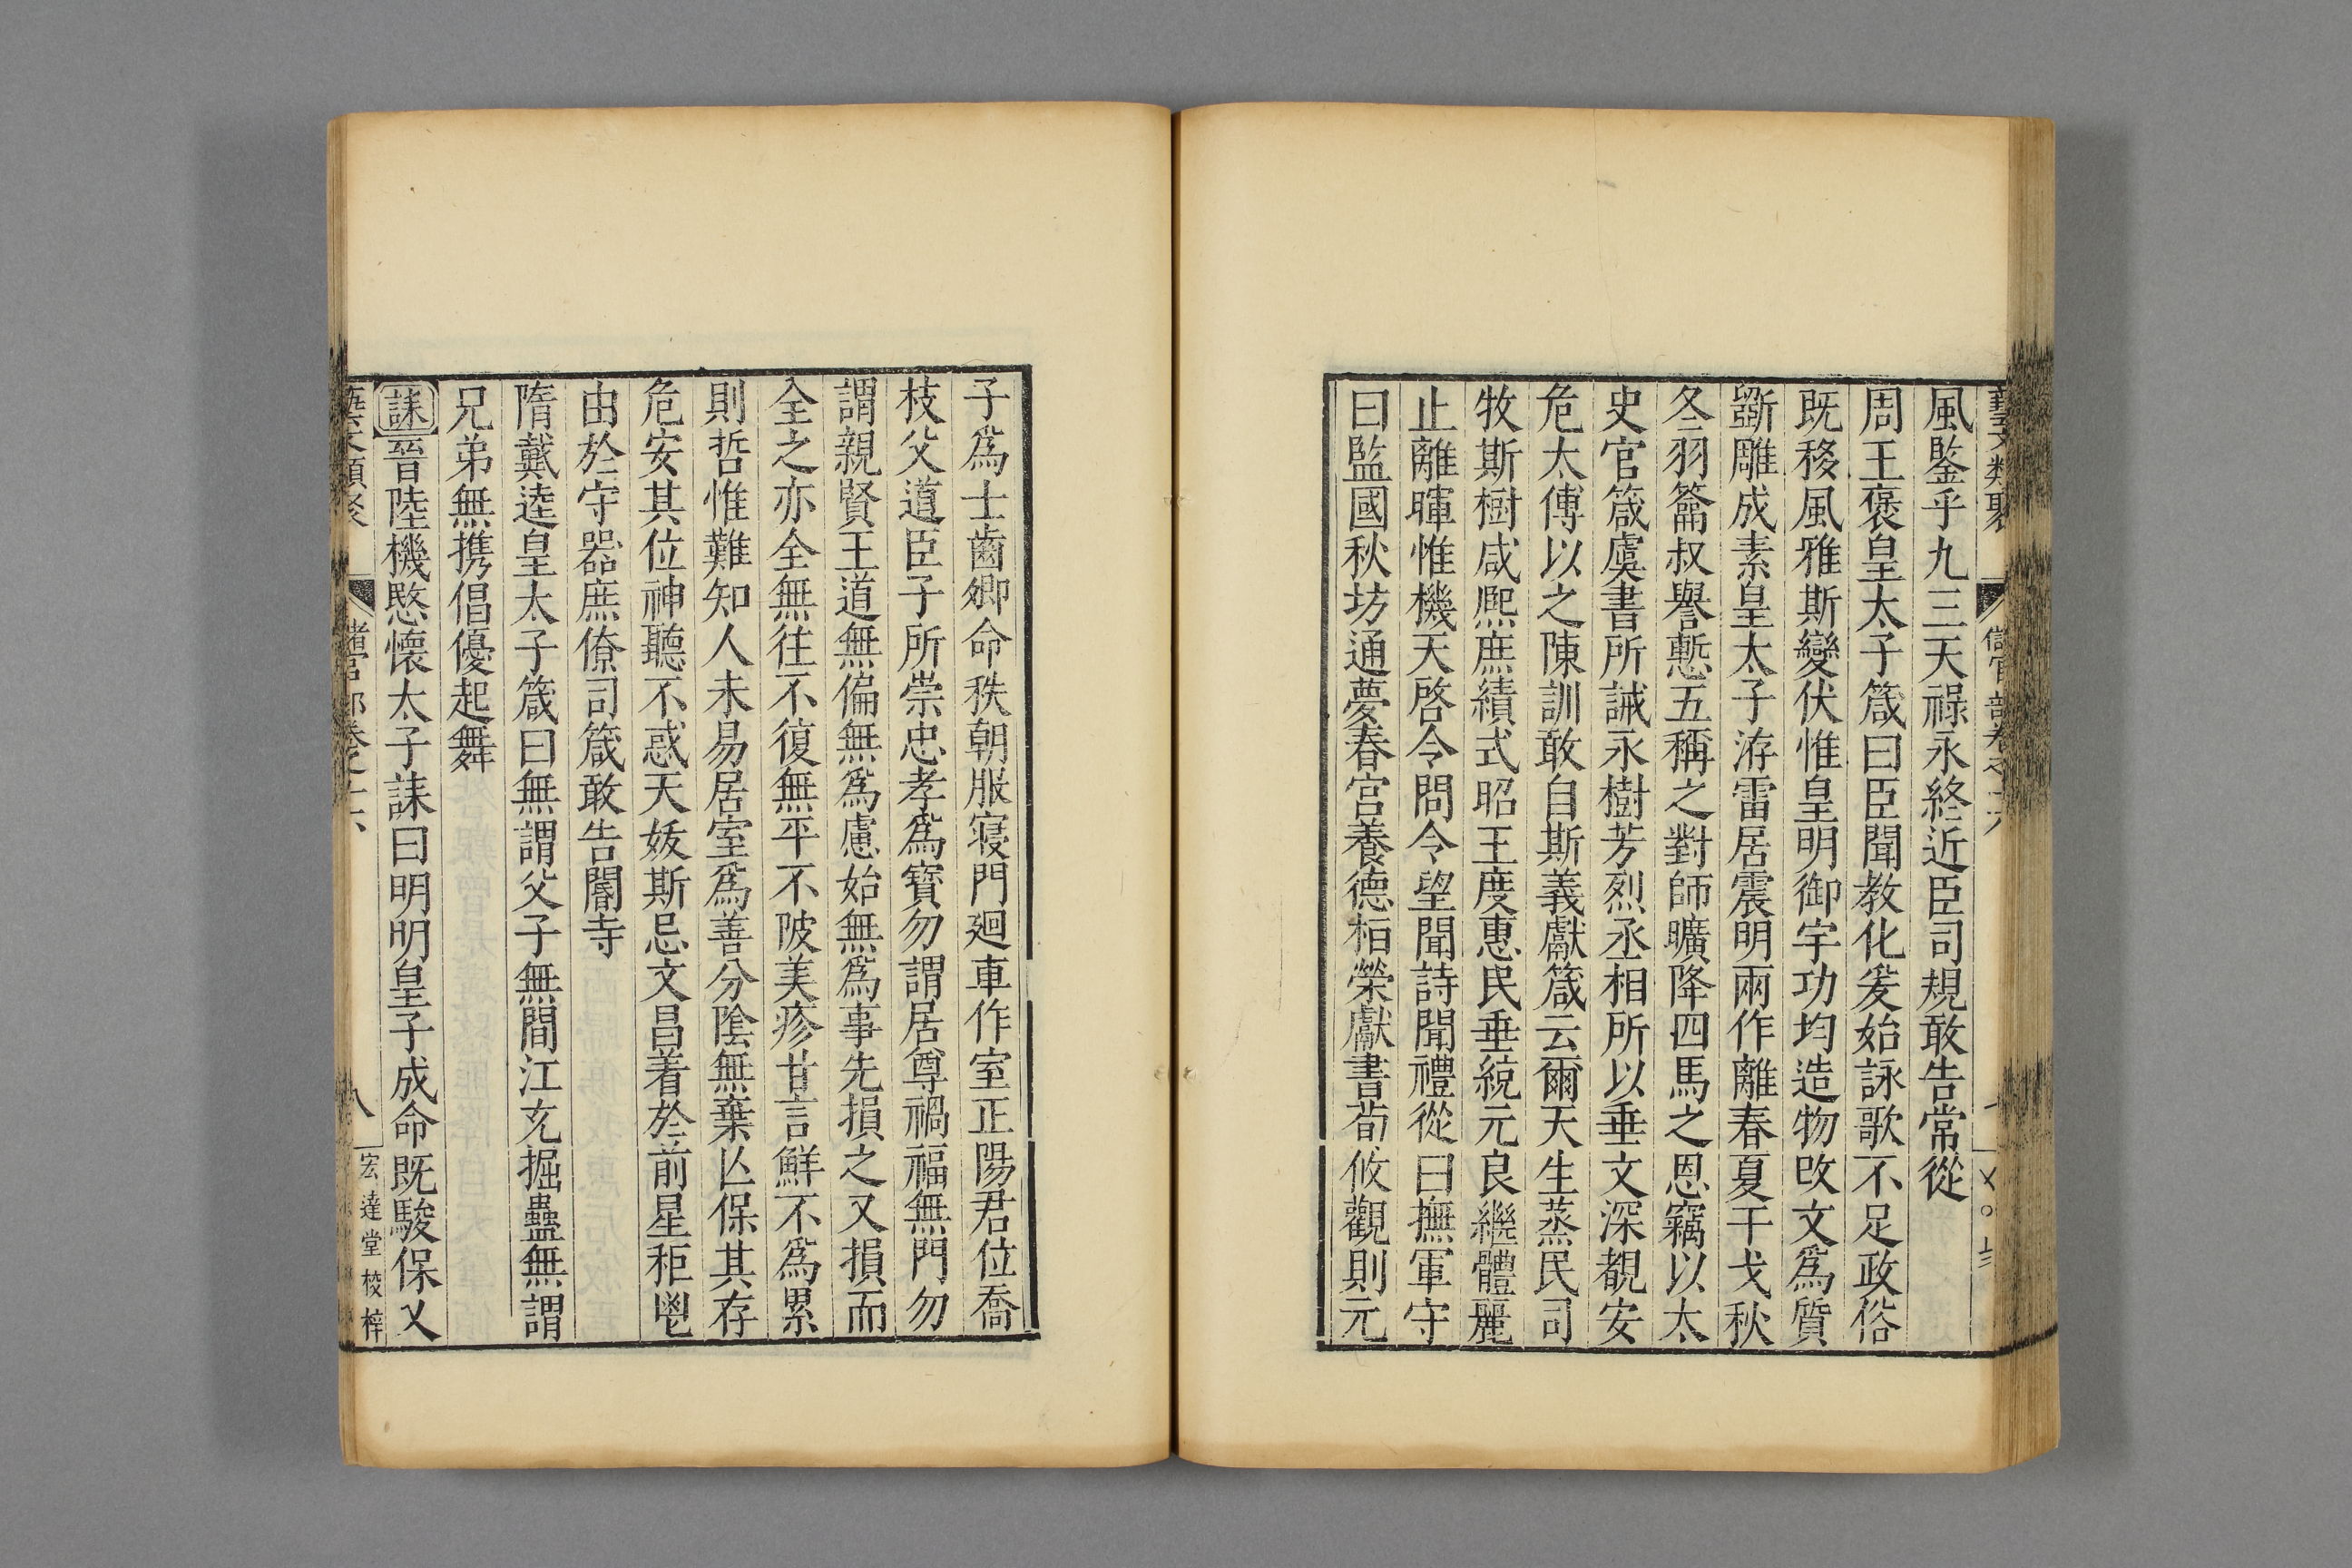 藝文類聚 儲官部卷之十六
風鑒乎九三天祿永終近臣司規敢告常從
周王褒皇太子箴曰臣聞教化爰始詠歌不足政俗
既移風雅斯變伏惟皇明御宇功均造物改文爲質
斵雕成素皇太子洊雷居震明兩作離春夏干戈秋
冬羽籥叔譽慙五稱之對師曠降四馬之恩竊以太
史官箴虞書所誡永樹芳烈丞相所以垂文深覩安
危太傅以之陳訓敢自斯義獻箴云爾天生蒸民司
牧斯樹咸熙庶績式昭王度惠民垂統元良繼體麗
止離暉惟機天啓令問令望聞詩聞禮從曰撫軍守
曰監國秋坊通夢春宮養德栢榮獻書荀攸觀則元
子爲士齒卿命秩朝服寢門廻車作室正陽君位喬
枝父道臣子所崇忠孝爲寶勿謂居尊禍福無門勿
謂親賢王道無偏無爲慮始無爲事先損之又損而
全之亦全無往不復無平不陂美疹甘言鮮不爲累
則哲惟難知人未易居室爲善分陰無棄亾保其存
危安其位神聽不惑天妭斯忌文昌着於前星秬鬯
由於守器庶僚司箴敢告閽寺
隋戴逵皇太子箴曰無謂父子無間江充掘蠱無謂
兄弟無携倡優起舞
誄晉陸機愍懷太子誄曰明明皇子成命既駿保乂
藝文類聚 儲官部卷之十六 八 宏達堂校梓